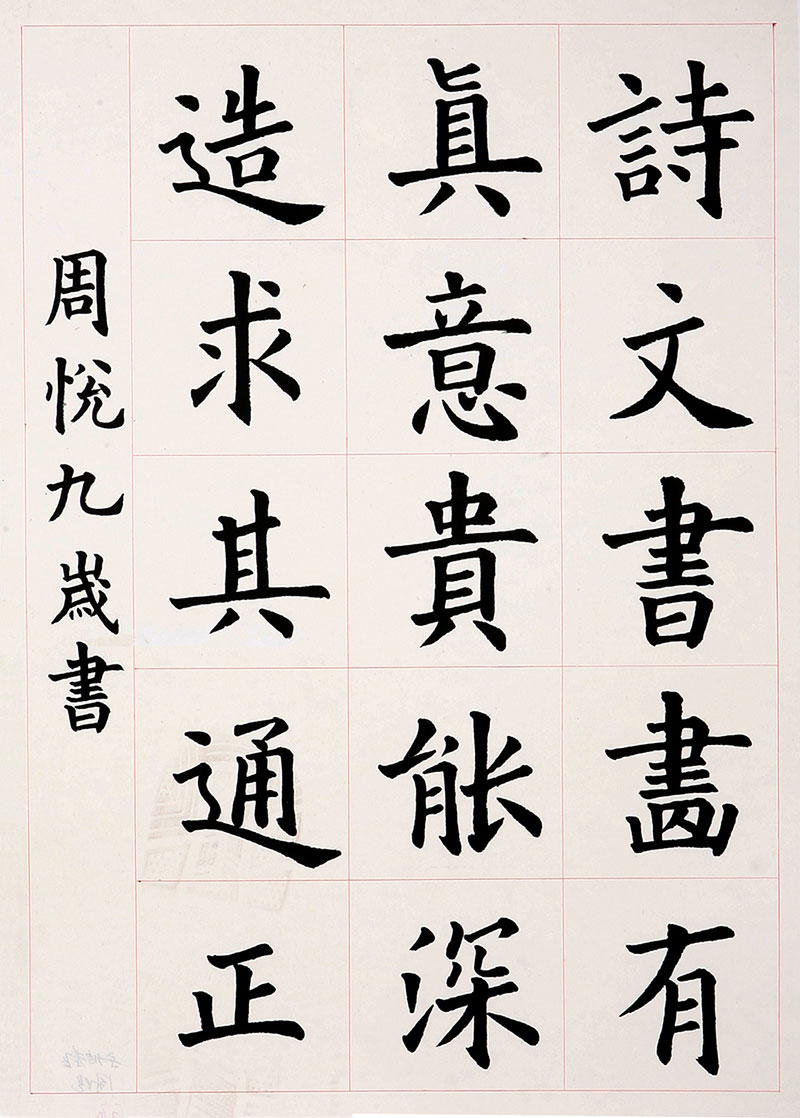 詩文書畫有
眞意貴能深
造求其通正
周悅九歲書